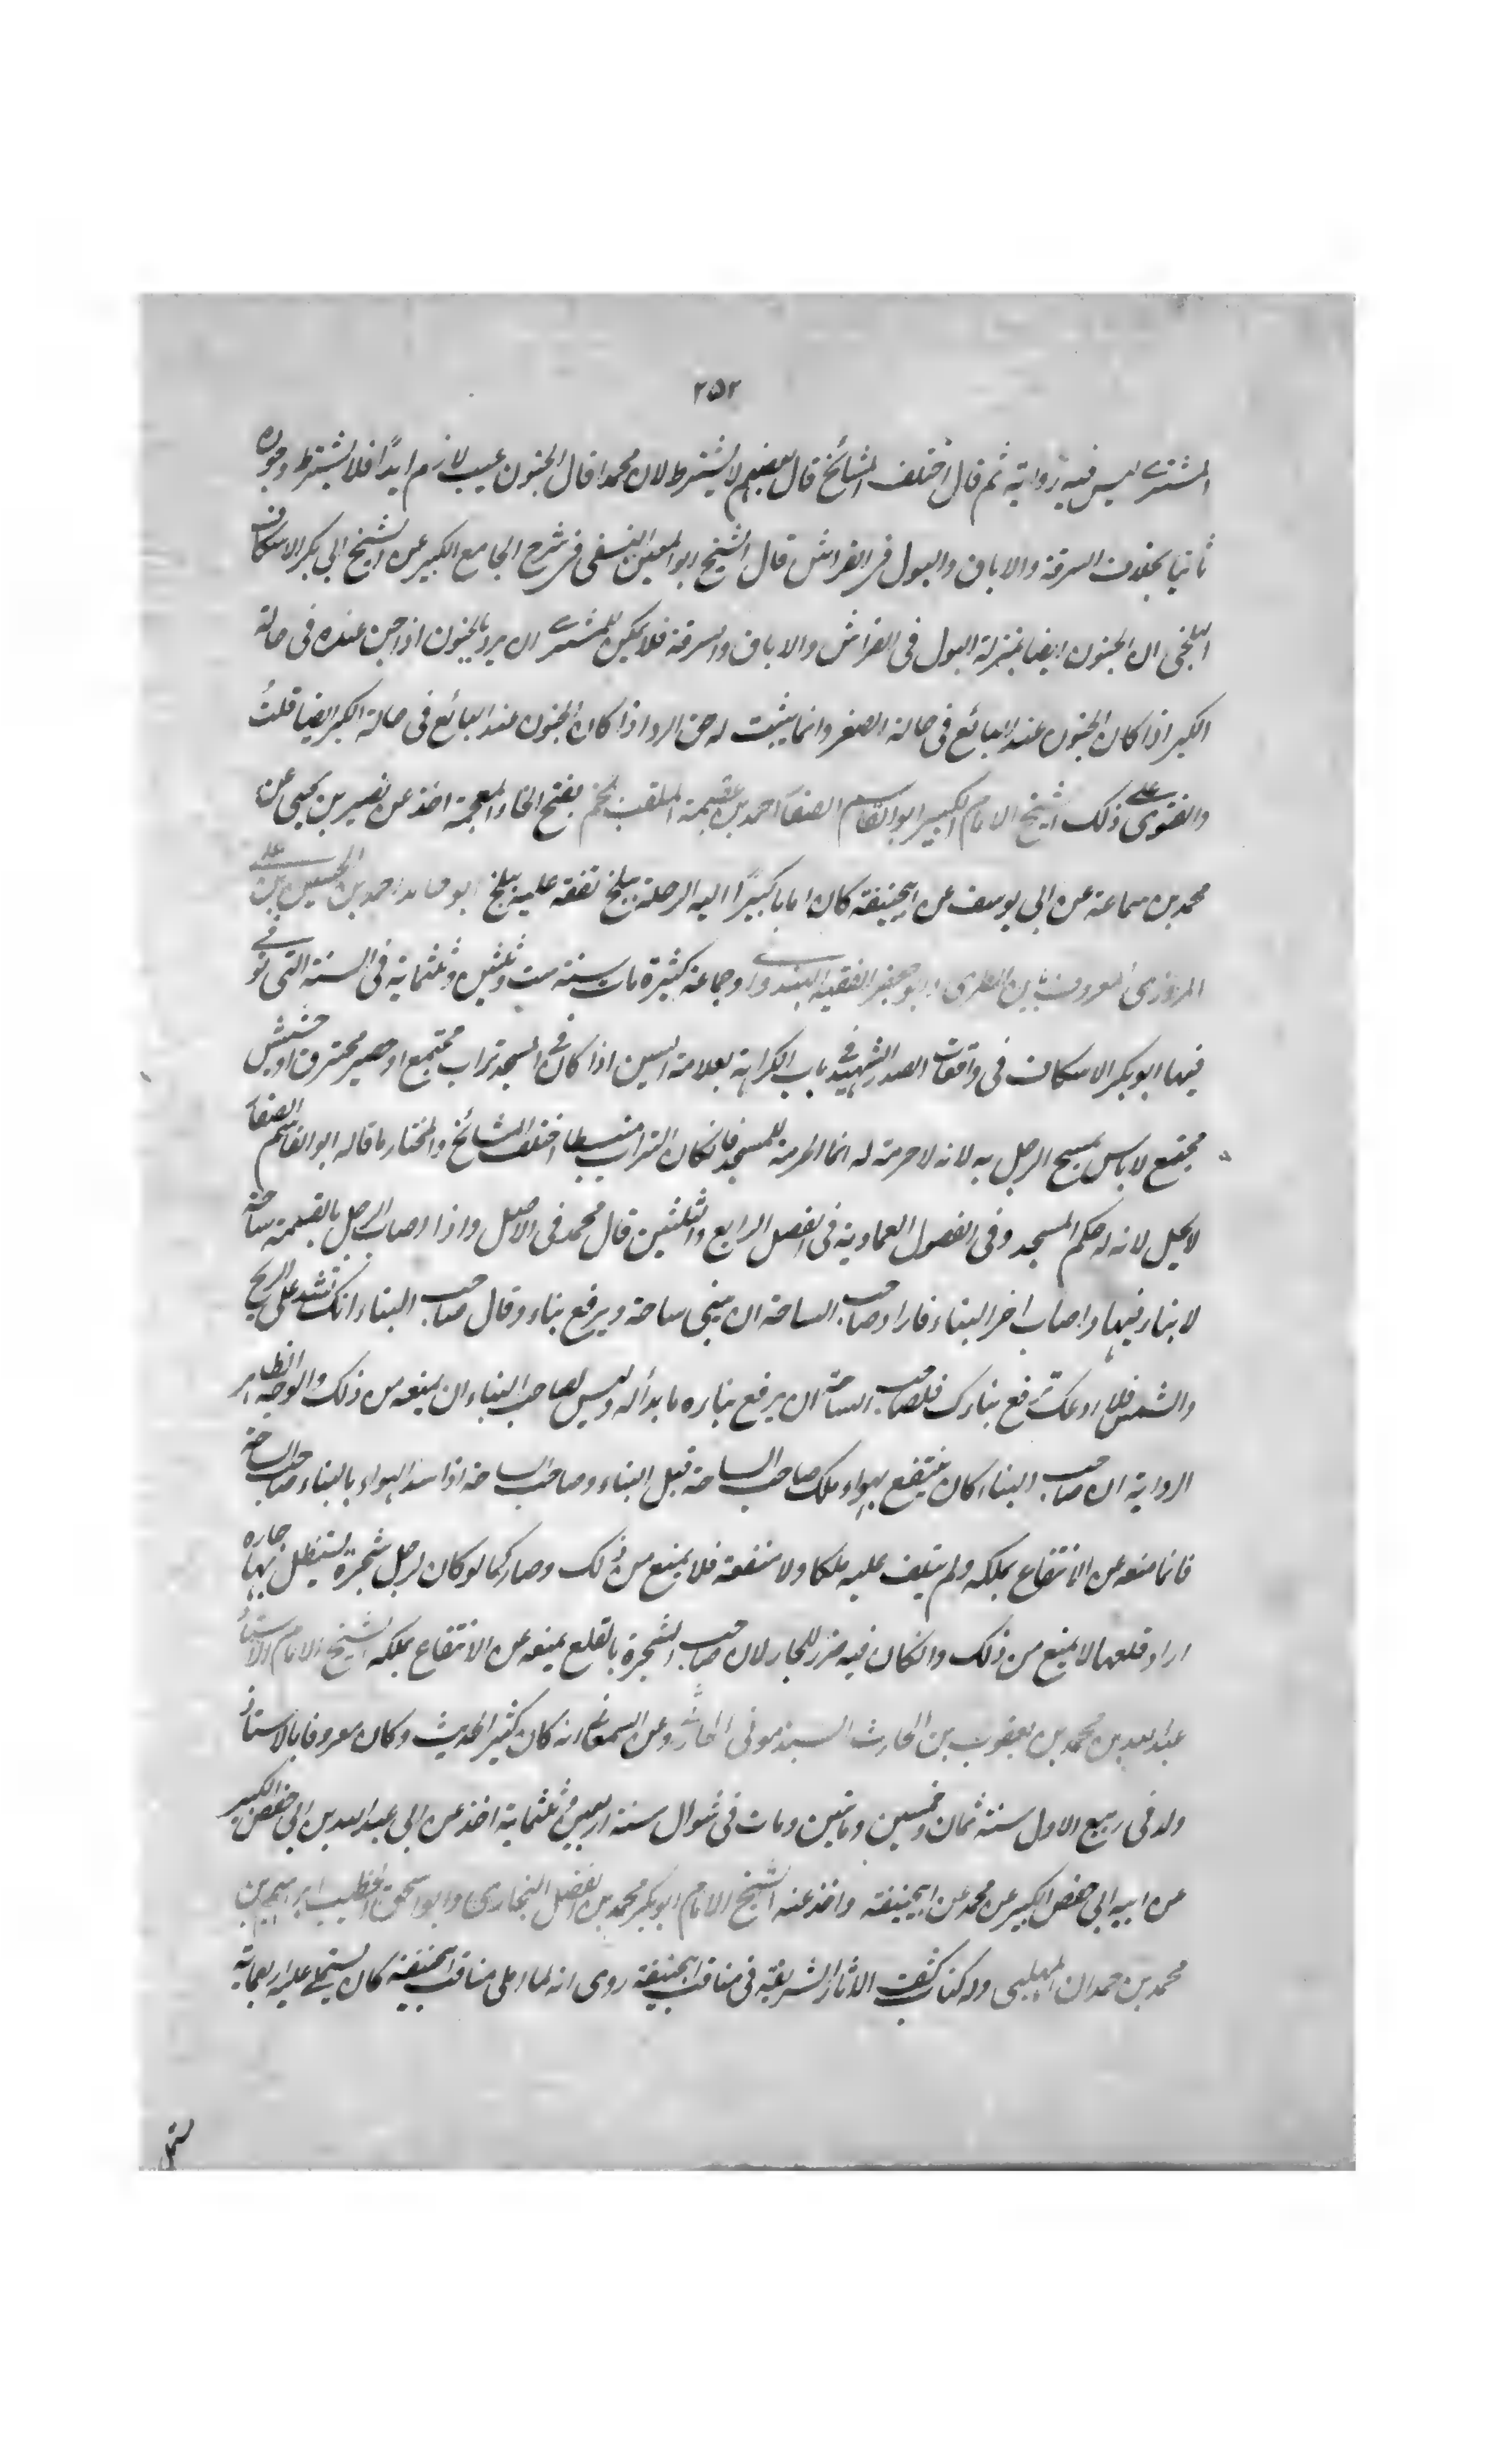 ٢٥٢
المشترى ليس فيه رواية ثم قال اختلف المشائخ قال بعضهم لا يشترط لان محمدا قال الجنون عيب لازم ابدًا فلا يشترط وجوده
ثانيا بخلاف السرقة والاباق والبول فى الفراش قال الشيخ ابو المعين النسفى فى شرح الجامع الكبير عن الشيخ ابى بكر الاسكاف
البلخى ان الجنون ايضا بمنزلة البول فى الفراش والاباق والسرقة فلا يكون للمشترى ان يرد بالجنون اذا جن عنده فى حالة
الكبر اذا كان الجنون عند البائع فى حالة الصغر وانما يثبت له حق الرد اذا كان الجنون عند البائع فى حالة الكبر ايضا قلتُ
والفتوى على ذلك الشيخ الامام الكبير ابو القاسم الصفار احمد بن عصمة الملقب بحم بفتح الحاء المعجمة اخذ عن نصير بن يحيى عن
محمد بن سماعة عن ابى يوسف عن ابيحنيفة كان اماما كبيرًا اليه الرحلة ببلخ تفقه عليه ببلخ ابو حامد احمد بن الحسين بن على
المروزى المعروف بابن الطبرى وابو جعفر الفقيه الهندوانى وجماعة كثيرة مات سنة ست وثلثين وثلثماية فى السنة التى توفى
فيها ابو بكر الاسكاف فى واقعات الصدر الشهيد فى باب الكراهة بعلامة السين اذا كان فى المسجد تراب مجتمع او حصير محترق او حشيش
مجتمع لا باس بمسح الرجل به لانه لا حرمة له انما الحرمة للمسجد فانكان التراب منبسطا اختلف المشائخ والمختار ما قاله ابو القاسم الصفار
لا يحل لانه له حكم المسجد وفى الفصول العمادية فى الفصل الرابع والثلثين قال محمد فى الاصل واذا اصاب الرجل بالقسمة ساحة
لا بناء فيها واصاب اخر البناء فاراد صاحب الساحة ان يبنى ساحة ويرفع بناء وقال صاحب البناء انك تشد على الريح
والشمس فلا ادعك ترفع بناءك فلصاحب الساحة ان يرفع بناءه ما بدأ له وليس لصاحب البناء ان يمنعه من ذلك والوجه لظاهر
الرواية ان صاحب البناء كان ينتفع بهواء ملك صاحب الساحة قبل البناء وصاحب الساحة اذا سد الهواء بالبناء صاحب الساحة
فانما منعه عن الانتفاع بملكه ولم يتلف عليه ملكا ولا منفعة فلا يمنع من ذلك وصار كما لو كان لرجل شجرة يستظل بها جاره
اراد قلعها لا يمنع من ذلك وانكان فيه ضرر للجار لان صاحب الشجرة بالقلع يمنعه عن الانتفاع بملكه الشيخ الامام الاستاذ
عبد الله بن محمد بن يعقوب بن الحارث السبذمونى الحارثى وعن السمعانى انه كان كثير الحديث وكان معروفا بالاستاذ
ولد فى ربيع الاول سنة ثمان وخمسين ومائتين ومات فى شوال سنة اربعين وثلثماية اخذ عن ابى عبد الله بن ابى حفص الكبير
عن ابيه ابى حفص الكبير عن محمد عن ابيحنيفة واخذ عنه الشيخ الامام ابو بكر محمد بن الفضل البخارى وابو اسحق الخطيب ابراهيم بن
محمد بن حمدان المهلبى وله كتاب كشف الاثار الشريفة فى مناقب ابيحنيفة روى انه لما املى مناقب ابيحنيفة كان يستملى عليه اربعماية
مستمل